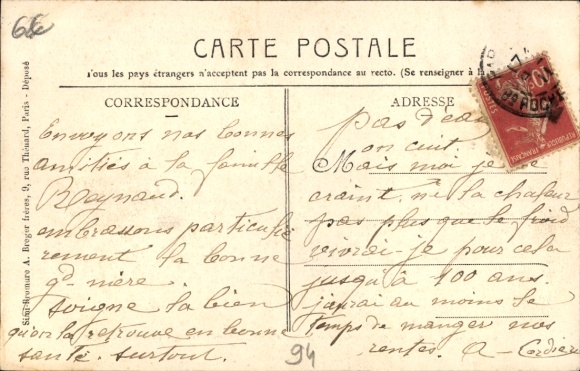 68
CARTE POSTALE
Tous les pays étrangers n'acceptent pas la correspondance au recto. (Se renseigner à la
CORRESPONDANCE
Envoyons nos bonnes
amitiés à la famille
Reynaud.
embrassons particuliè
rement la bonne
gd-mère.
soigne la bien
qu'on la retrouve en bonne
santé. surtout.
94
ADRESSE
pas d'eau
on cuit
Mais moi je ne
craint ni la chaleur
pas plus que le froid
vivrai-je pour cela
jusqu'à 100 ans.
j'aurai au moins le
temps de manger nos
rentes. A-Cordier
REPUBLIQUE FRANÇAISE
10
ROCHE
Simi-Bromure A. Breger frères, 9, rue Thénard, Paris - Déposé